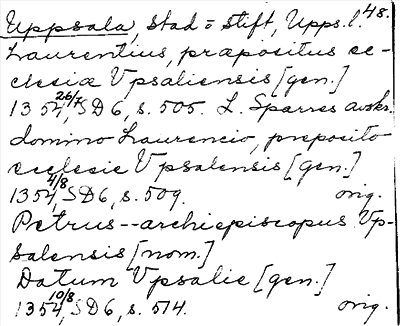 Uppsala, stad o stift, Upps. l. 48.
Laurentius, præpositus ec-
clesiæ Vpsaliensis [gen.]
1352 26/7, SD6, s. 505. L. Sparres avskr.
domino Laurencio, preposito
ecclesie Vpsalensis [gen.]
1354 4/8, SD6, s. 509. orig.
Petrus -- archiepiscopus Vp-
salensis [nom.]
Datum Vpsalie [gen.]
1354 10/8, SD6, s. 514. orig.